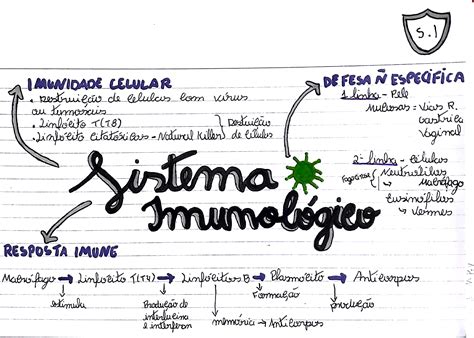 S.I
IMUNIDADE CELULAR
• Destruição de células com vírus
ou tumorais
• Linfócito T(T8)
• Linfócitos citotóxicos - Natural Killer } Destruição
de células
DEFESA Ñ ESPECÍFICA
1ª linha - Pele
Mucosas = Vias R.
Gástrica
Vaginal
2ª linha - Células
Fagocitose Neutrófilos
Macrófago
Eusinófilos
↳ Vermes
Sistema
Imunológico
RESPOSTA IMUNE
Macrófago → Linfócito T(T4) → Linfócitos B → Plasmócito → Anticorpos
Estimula
Produção de
interlucina
e interferon
Formação
produção
memória → Anticorpos